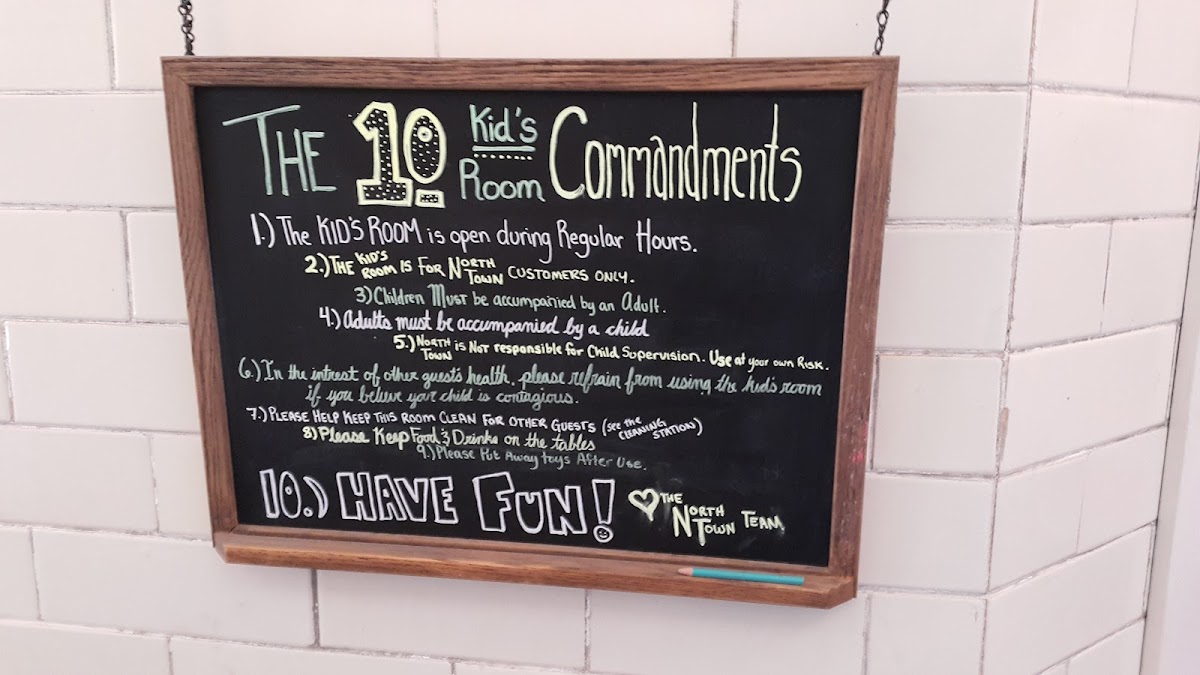 The 10 Kid's Room Commandments
1.) The KID'S ROOM is open during Regular Hours.
2.) THE KID'S ROOM IS FOR NORTH TOWN CUSTOMERS ONLY.
3) Children MUST be accompanied by an Adult.
4.) Adults must be accompanied by a child
5.) NORTH TOWN is NOT responsible for Child Supervision. Use at your own Risk.
6.) In the intrest of other guest's health, please refrain from using the kid's room
if you believe your child is contagious.
7.) PLEASE HELP KEEP THIS ROOM CLEAN FOR OTHER GUESTS (see the CLEANING STATION)
8) Please Keep Food & Drinks on the tables
9.) Please Put Away toys After Use.
10.) HAVE FUN!
THE NORTH TOWN TEAM